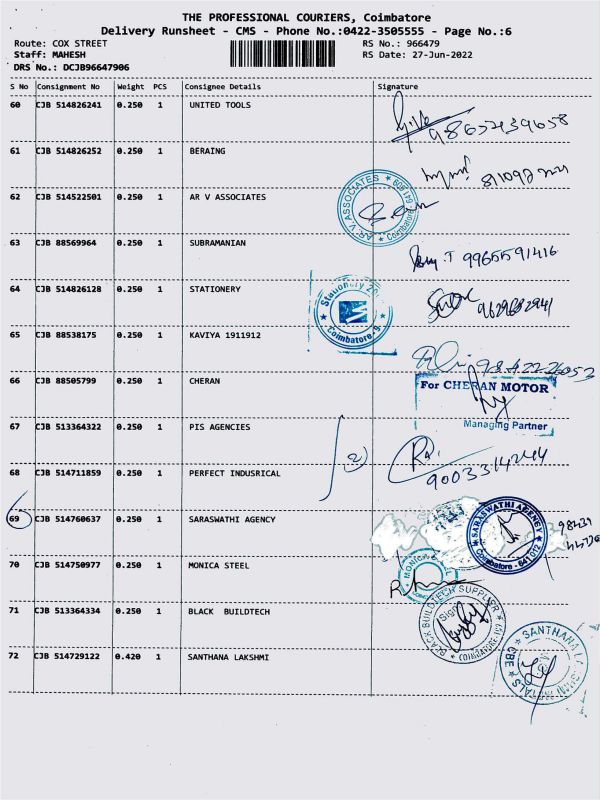 THE PROFESSIONAL COURIERS, Coimbatore
Delivery Runsheet - CMS - Phone No.:0422-3505555 - Page No.:6
Route: COX STREET RS No.: 966479
Staff: MAHESH RS Date: 27-Jun-2022
DRS No.: DCJB96647906
S No Consignment No Weight PCS Consignee Details Signature
60 CJB 514826241 0.250 1 UNITED TOOLS
61 CJB 514826252 0.250 1 BERAING
62 CJB 514522501 0.250 1 AR V ASSOCIATES
AR. V. ASSOCIATES Coimbatore - 641 609
63 CJB 88569964 0.250 1 SUBRAMANIAN
9965591416
64 CJB 514826128 0.250 1 STATIONERY
Stationery Coimbatore-9
65 CJB 88538175 0.250 1 KAVIYA 1911912
66 CJB 88505799 0.250 1 CHERAN
For CHERAN MOTOR
Managing Partner
67 CJB 513364322 0.250 1 PIS AGENCIES
(2)
68 CJB 514711859 0.250 1 PERFECT INDUSRICAL
69 CJB 514760637 0.250 1 SARASWATHI AGENCY
SARASWATHI AGENEY Coimbatore - 641 012
70 CJB 514750977 0.250 1 MONICA STEEL
MONICA
71 CJB 513364334 0.250 1 BLACK BUILDTECH
BLACK BUILDTECH SUPPLIER
Sign
72 CJB 514729122 0.420 1 SANTHANA LAKSHMI
CBE